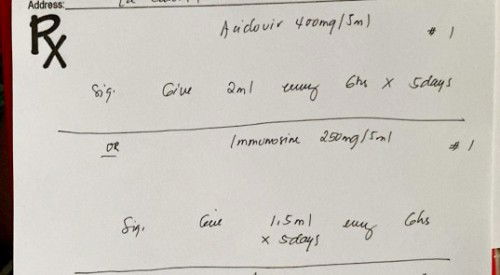 Address:
Rx
Aciclovir 400mg/5ml # 1
Sig. Give 2ml every 6hs x 5days
OR
Immunosine 250mg/5ml # 1
Sig. Give 1.5ml every 6hs
x 5days